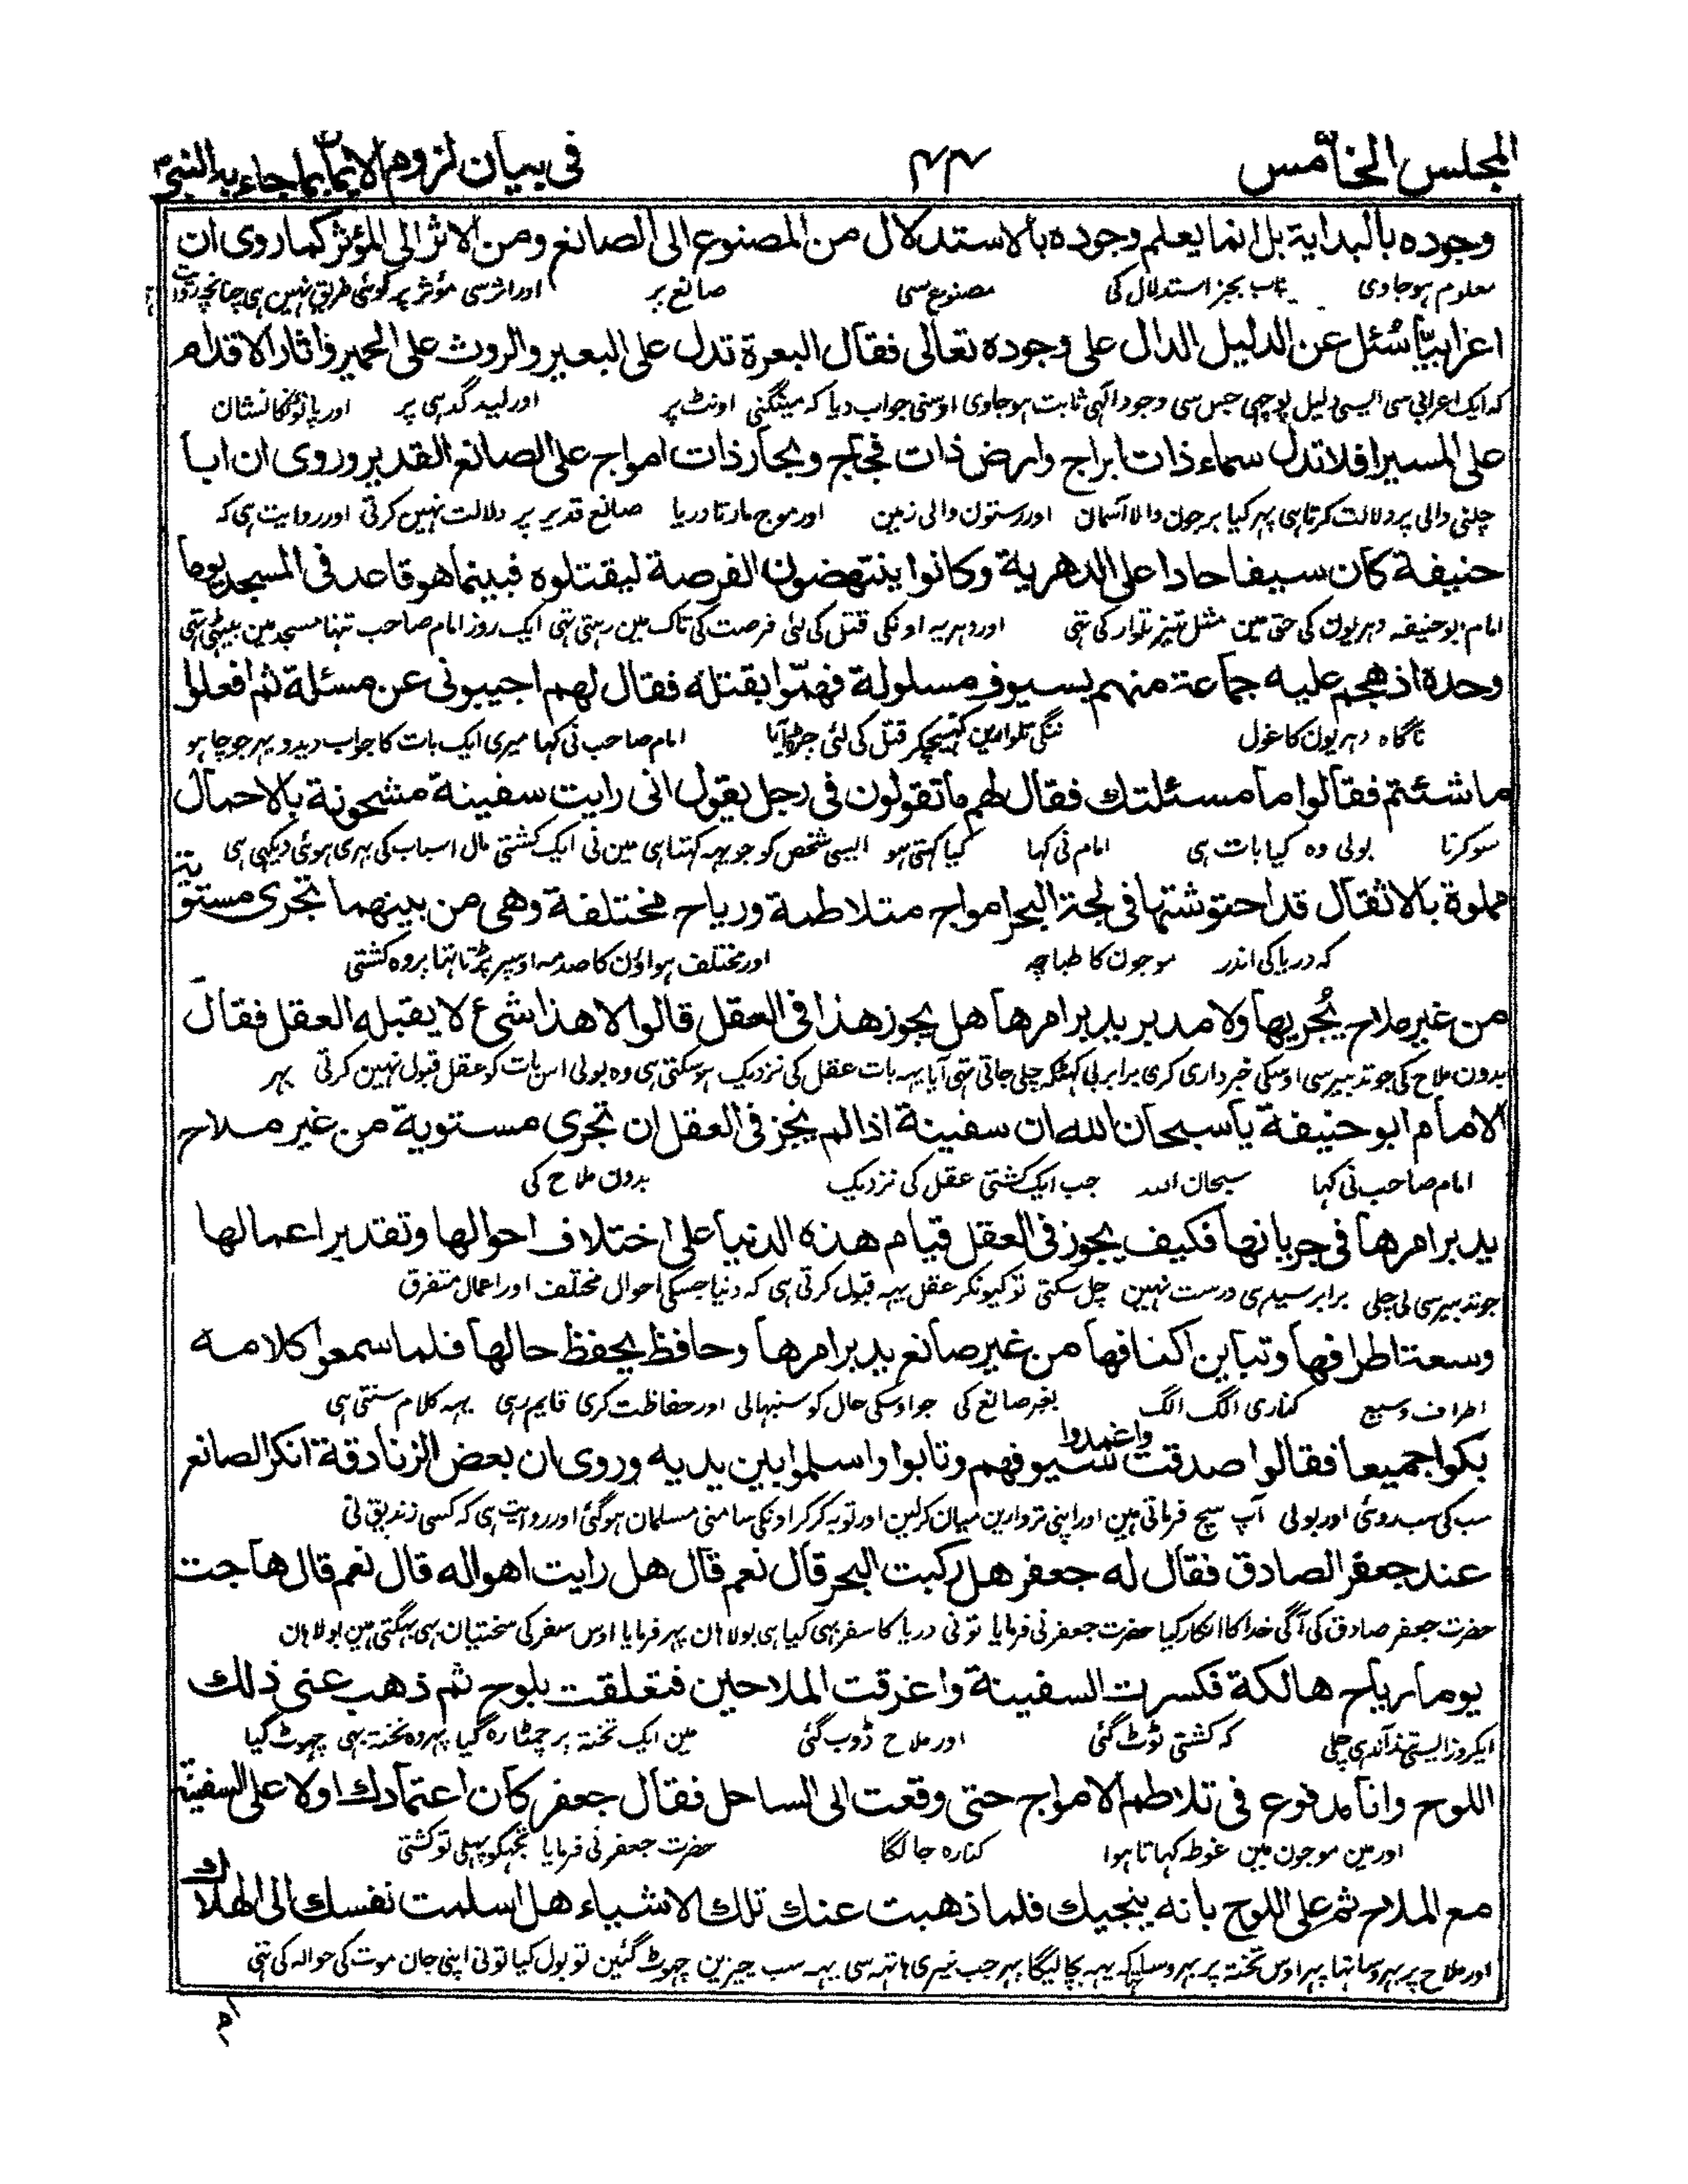 المجلس الخامس ۴۴ فى بيان لزوم الايمان بما جاء به النبى
وجوده بالبداية بل انما يعلم وجوده بالاستدلال من المصنوع الى الصانع ومن الاثر الى المؤثر كما روى ان
معلوم ہوجاوی بجز استدلال کی مصنوع سی صانع پر اور اثر سی مؤثر پر کوئی طریق نہین ہی چنانچہ روایت ہی
اعرابيّا سُئل عن الدليل الدال على وجوده تعالى فقال البعرة تدل على البعير والروث على الحمير واثار الاقدام
کہ ایک اعرابی سی ایسی دلیل پوچھی جس سی وجود الہی ثابت ہوجاوی اوسنی جواب دیا کہ مینگنی اونٹ پر اور لید گدہی پر اور پانونکا نشان
على المسير افلا تدل سماء ذات ابراج وارض ذات فجاج وبحار ذات امواج على الصانع القدير وروى ان ابا
چلنی والی پر دلالت کرتا ہی پہر کیا برجون والا آسمان اور رستون والی زمین اور موج مارتا دریا صانع قدیر پر دلالت نہین کرتی اور روایت ہی کہ
حنيفة كان سيفا حادا على الدهرية وكانوا ينتهضون الفرصة ليقتلوه فبينما هو قاعد فى المسجد يوما
امام ابوحنیفہ دہریون کی حق مین مثل تیز تلوار کی تہی اور دہریہ اونکی قتل کی لئی فرصت کی تاک مین رہتی تہی ایک روز امام صاحب تنہا مسجد مین بیٹہی تہی
وحده اذ هجم عليه جماعة منهم بسيوف مسلولة فهمّوا بقتله فقال لهم اجيبونى عن مسئلة ثم افعلوا
ناگاہ دہریون کا غول ننگی تلوارین کہینچکر قتل کی لئی چڑہ آیا امام صاحب نی کہا میری ایک بات کا جواب دیدو پہر جو چاہو
ما شئتم فقالوا ما مسئلتك فقال لهم ما تقولون فى رجل يقول انى رايت سفينة مشحونة بالاحمال
سو کرنا بولی وہ کیا بات ہی امام نی کہا کیا کہتی ہو ایسی شخص کو جو یہہ کہتا ہی مین نی ایک کشتی مال اسباب کی بہری ہوئی دیکہی ہی
مملوة بالاثقال قد احتوشتها فى لجة البحر امواج متلاطمة ورياح مختلفة وهى من بينهما تجرى مستوية
کہ دریا کی اندر موجون کا طباچہ اور مختلف ہواؤن کا صدمہ اوسپر پڑتا تہا پر وہ کشتی
من غير ملاح يُجريها ولا مدبر يدبر امرها هل يجوز هذا فى العقل قالوا لا هذا شئ لا يقبله العقل فقال
بدون ملاح کی جو تدبیر سی اوسکی خبرداری کری برابر بی کہٹکہ چلی جاتی تہی آیا یہہ بات عقل کی نزدیک ہوسکتی ہی وہ بولی اس بات کو عقل قبول نہین کرتی پہر
الامام ابو حنيفة يا سبحان الله ان سفينة اذا لم يجز فى العقل ان تجرى مستوية من غير ملاح
امام صاحب نی کہا سبحان اللہ جب ایک کشتی عقل کی نزدیک بدون ملاح کی
يدبر امرها فى جريانها فكيف يجوز فى العقل قيام هذه الدنيا على اختلاف احوالها وتقدير اعمالها
جو تدبیر سی لی چلی برابر سیدہی درست نہین چل سکتی تو کیونکر عقل یہہ قبول کرتی ہی کہ دنیا جسکی احوال مختلف اور اعمال متفرق
وسعة اطرافها وتباين اكنافها من غير صانع يدبر امرها وحافظ يحفظ حالها فلما سمعوا كلامه
اطراف وسیع کناری الگ الگ بغیر صانع کی جو اوسکی حال کو سنبہالی اور حفاظت کری قایم رہی یہہ کلام سنتی ہی
بكوا جميعا فقالوا صدقت واغمدوا سيوفهم وتابوا واسلموا بين يديه وروى ان بعض الزنادقة انكر الصانع
سب کی سب روئی اور بولی آپ سچ فرماتی ہین اور اپنی تروارین میان کرلین اور توبہ کرکر اونکی سامنی مسلمان ہوگئی اور روایت ہی کہ کسی زندیق نی
عند جعفر الصادق فقال له جعفر هل ركبت البحر قال نعم قال هل رايت اهواله قال نعم قال هاجت
حضرت جعفر صادق کی آگی خدا کا انکار کیا حضرت جعفر نی فرمایا تونی دریا کا سفر بہی کیا ہی بولا ہان پہر فرمایا اوس سفر کی سختیان بہی بہگتی ہین بولا ہان
يوما رياح هالكة فكسرت السفينة واغرقت الملاحين فتعلقت بلوح ثم ذهب عنى ذلك
ایکروز ایسی تند آندہی چلی کہ کشتی ٹوٹ گئی اور ملاح ڈوب گئی مین ایک تختہ پر چمٹا رہ گیا پہر وہ تختہ بہی چہوٹ گیا
اللوح وانا مدفوع فى تلاطم الامواج حتى وقعت الى الساحل فقال جعفر كان اعتمادك اولا على السفينة
اور مین موجون مین غوطہ کہاتا ہوا کنارہ جا لگا حضرت جعفر نی فرمایا تجہکو پہلی تو کشتی
مع الملاح ثم على اللوح بانه ينجيك فلما ذهبت عنك تلك الاشياء هل اسلمت نفسك الى الهلاك
اور ملاح پر بہروسا تہا پہر اوس تختہ پر بہروسا کہ یہہ بچالیگا پہر جب تیری ہاتہہ سی یہہ سب چیزین چہوٹ گئین تو بول کیا تونی اپنی جان موت کی حوالہ کی تہی
ام